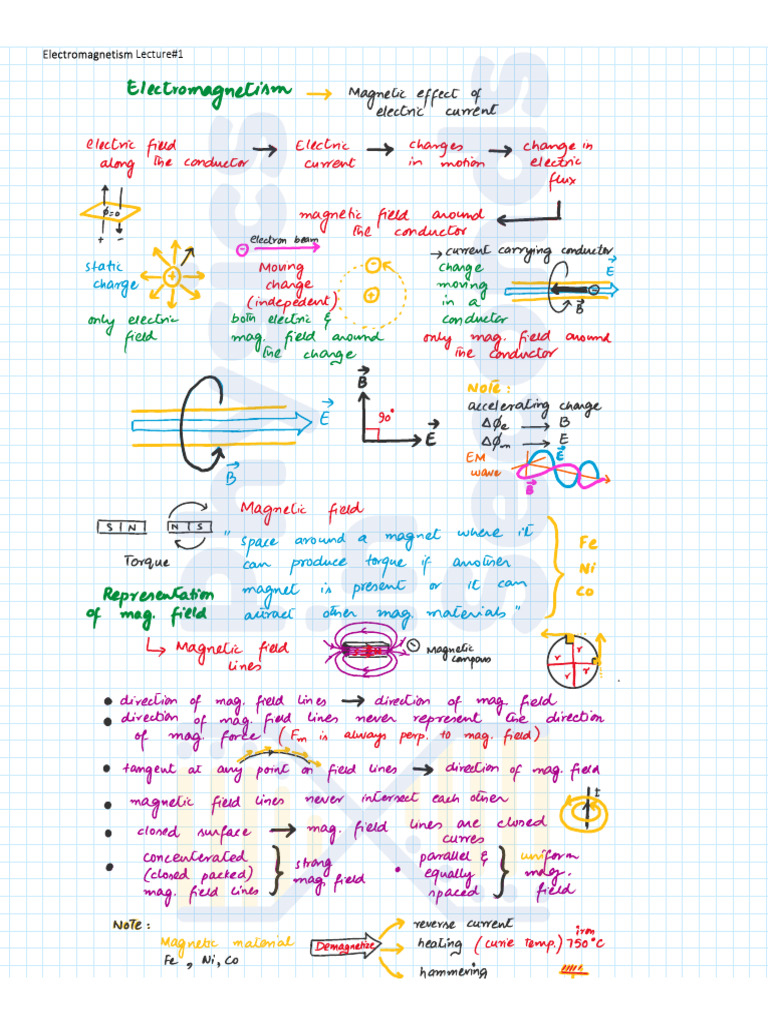 Electromagnetism Lecture#1
Electromagnetism → Magnetic effect of
electric current
electric field → Electric → charges → change in
along the conductor current in motion electric
flux
magnetic field around
the conductor
ϕ=0
+ -
electron beam
→ current carrying conductor
static
charge
+
Moving
charge
(indepedent)
-
+
charge
moving
in a
conductor
E
B
only electric
field
both electric &
mag. field around
the charge
only mag. field around
the conductor
E
B
B
90°
E
Note:
accelerating charge
Δϕe → B
Δϕm → E
EM
wave
E
B
Magnetic field
S N
N S
Torque
"space around a magnet where it
can produce torque if another
magnet is present or it can
attract other mag. materials"
Fe
Ni
Co
Representation
of mag. field
Magnetic field
lines
Magnetic
compass
r
r
r
r
• direction of mag. field lines → direction of mag. field
• direction of mag. field lines never represent the direction
of mag. force (Fm is always perp. to mag. field)
• tangent at any point on field lines → direction of mag. field
• magnetic field lines never intersect each other
• closed surface → mag. field lines are closed
curves
I
• concenterated
(closed packed)
mag. field lines
strong
mag. field
• parallel &
equally
spaced
uniform
mag.
field
Note:
Magnetic material
Fe, Ni, Co
Demagnetize
reverse current
heating (curie temp.) 750°C
iron
hammering
Physics
in
Seconds